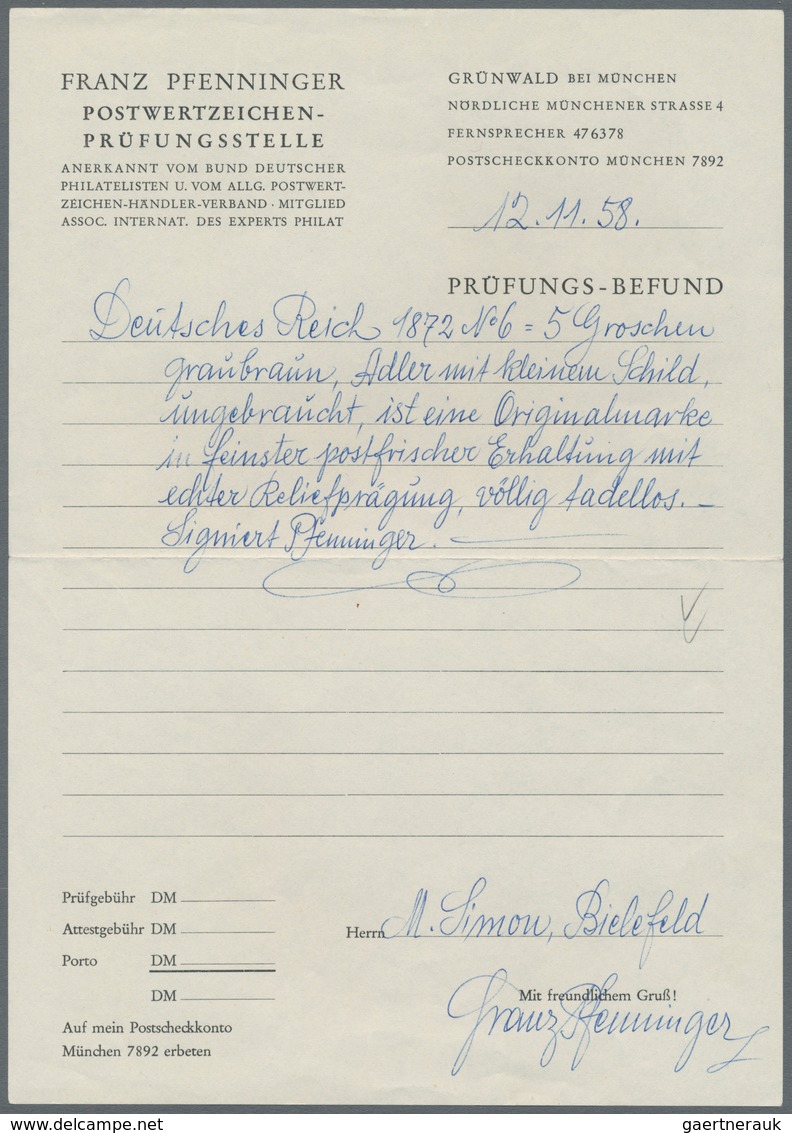 FRANZ PFENNINGER
POSTWERTZEICHEN-
PRÜFUNGSSTELLE
ANERKANNT VOM BUND DEUTSCHER
PHILATELISTEN U. VOM ALLG. POSTWERT-
ZEICHEN-HÄNDLER-VERBAND · MITGLIED
ASSOC. INTERNAT. DES EXPERTS PHILAT
GRÜNWALD BEI MÜNCHEN
NÖRDLICHE MÜNCHENER STRASSE 4
FERNSPRECHER 476378
POSTSCHECKKONTO MÜNCHEN 7892
12.11.58.
PRÜFUNGS-BEFUND
Deutsches Reich 1872 No 6 = 5 Groschen
graubraun, Adler mit kleinem Schild,
ungebraucht, ist eine Originalmarke
in feinster postfrischer Erhaltung mit
echter Reliefprägung, völlig tadellos. —
Signiert Pfenninger. —
Prüfgebühr DM
Attestgebühr DM
Porto DM
DM
Auf mein Postscheckkonto
München 7892 erbeten
Herrn M. Simon, Bielefeld
Mit freundlichem Gruß!
Franz Pfenninger
gaertnerauk